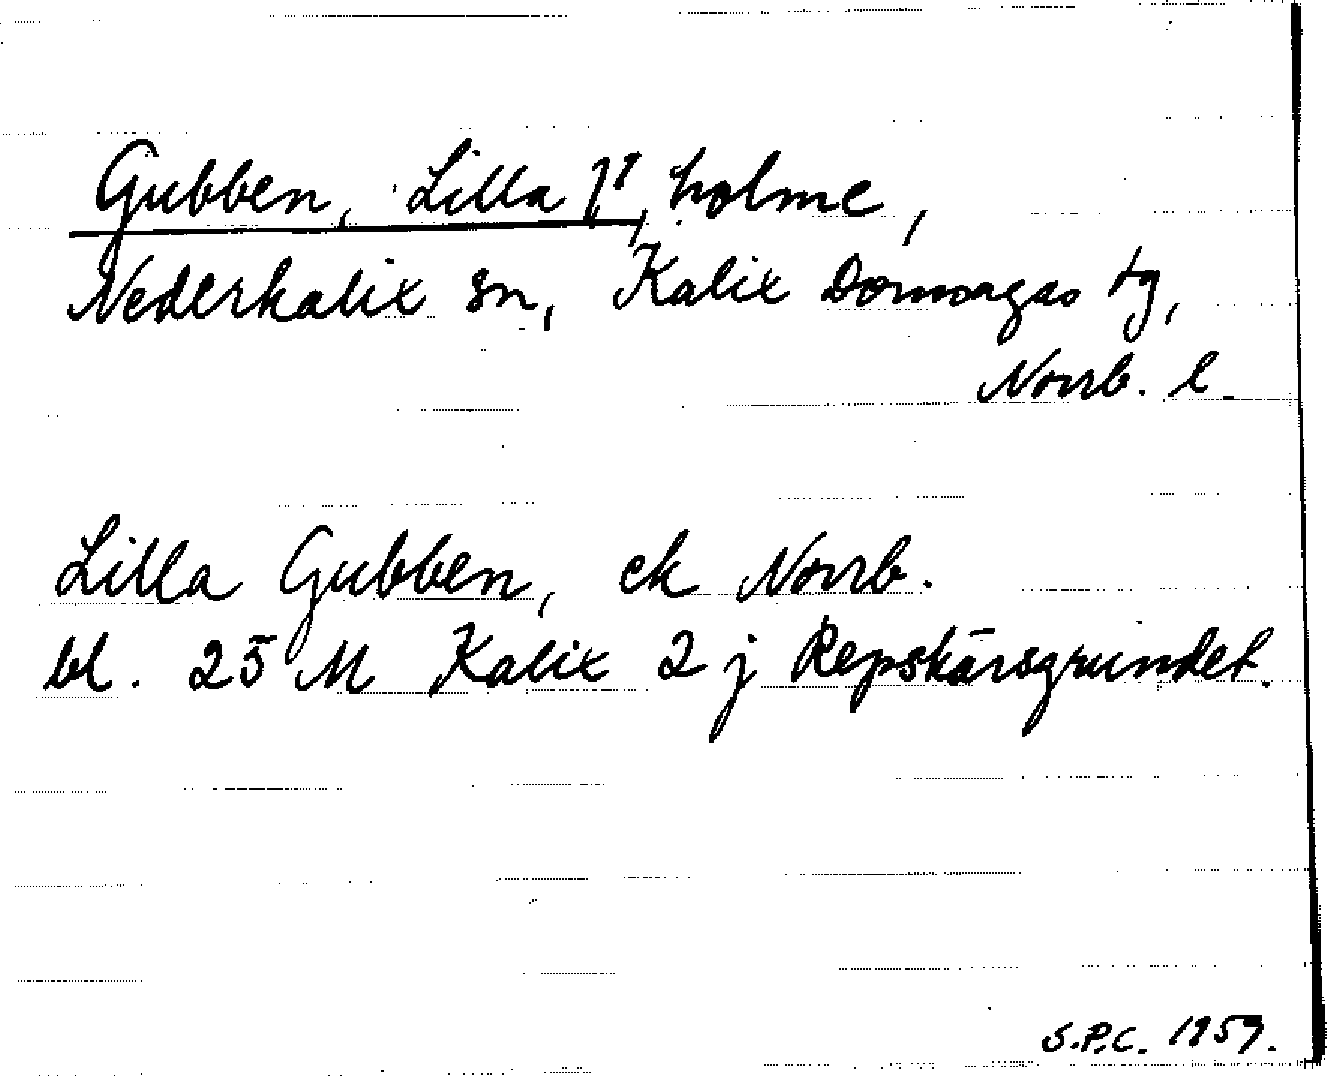 Gubben, Lilla //, holme,
Nederkalix sn, Kalix Domsagas tg,
Norrb. l.
Lilla Gubben, ek Norrb.
bl. 25 M Kalix 2 j Repskärsgrundet.
S.P.C. 1959.